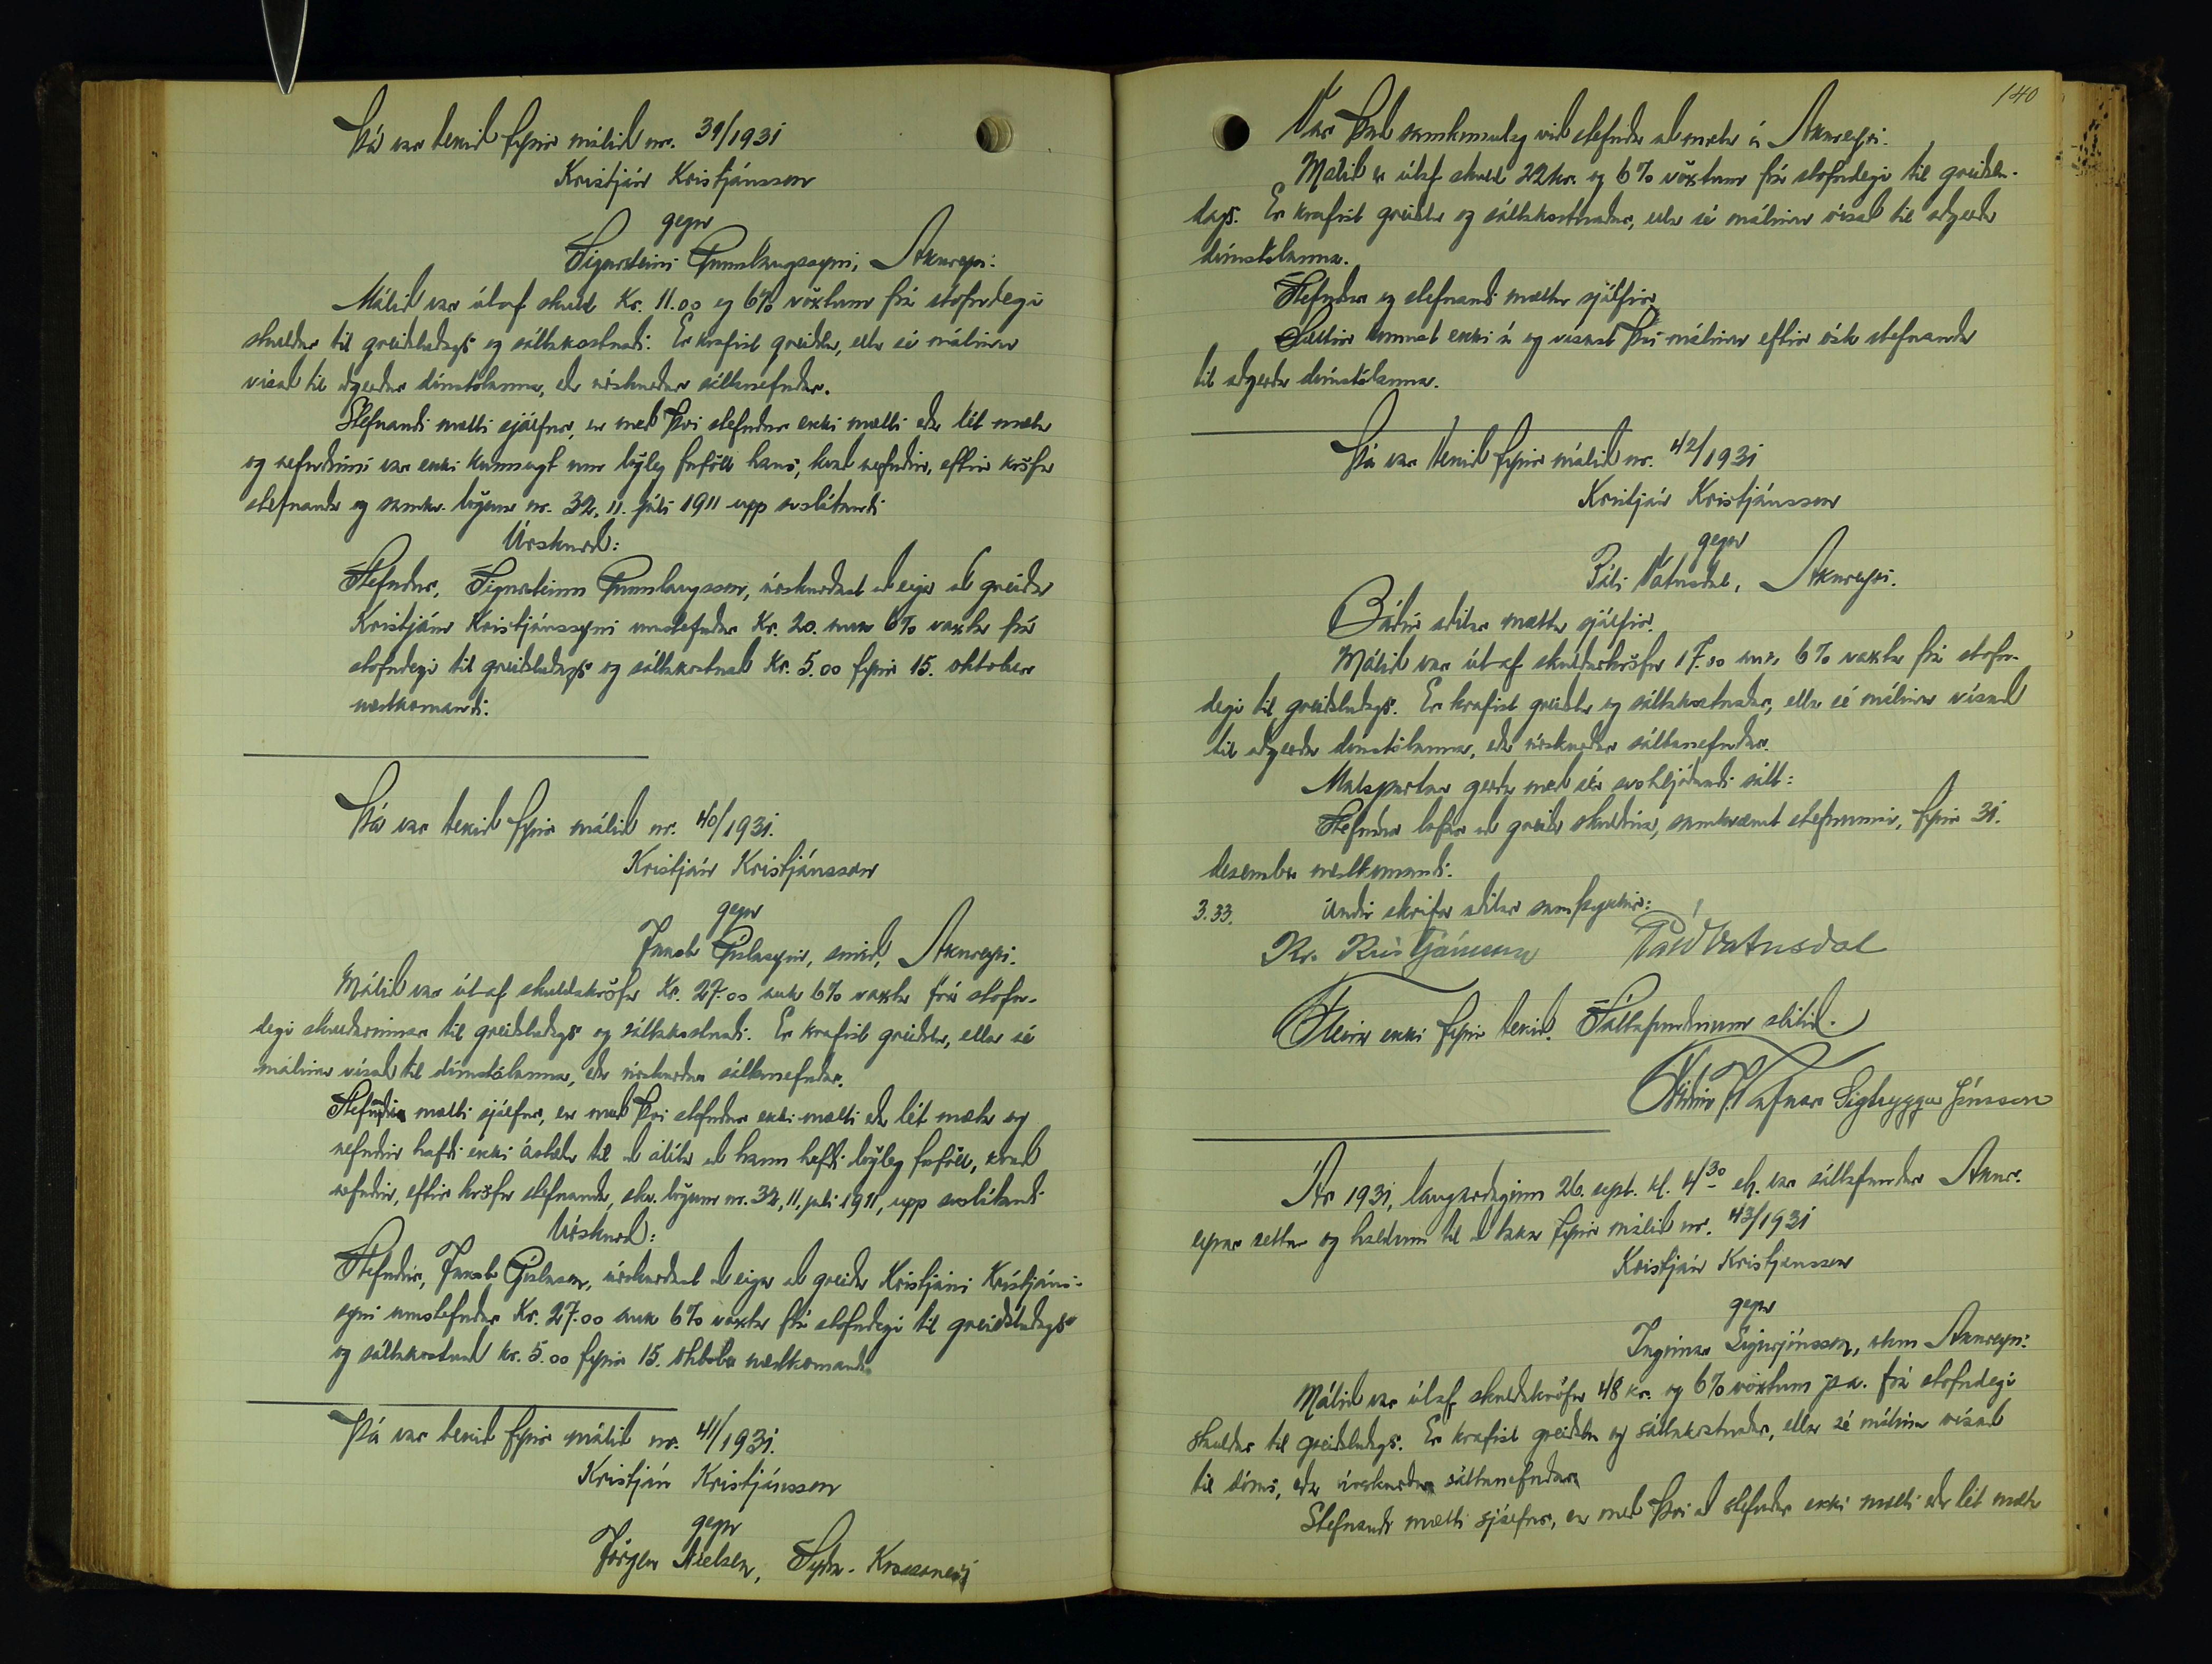 Þá var tekið fyrir málið nr. 39/1931
Kristján Kristjánsson
gegn
Sigursteini Gunnlaugssyni, Akureyri.
Málið var útaf skuld Kr. 11.00 og 6% vöxtum frá stofndegi
skuldar til greiðsludags og sáttakostnaði. Er krafist greiðslu, ella sé málinu
vísað til aðgerða dómstólanna, eða úrskurðar sáttanefndar.
Stefnandi mætti sjálfur, en með því stefndur ekki mætti eða lét mæta
og nefndinni var ekki kunnugt um lögleg forföll hans, kvað nefndin, eftir kröfu
stefnanda og samkv. lögum nr. 32, 11. júlí 1911 upp svolátandi
Úrskurð:
Stefndur, Sigursteinn Gunnlaugsson, úrskurðast að eiga að greiða
Kristjáni Kristjánssyni umstefndar Kr. 20. auk 6% vaxta frá
stofndegi til greiðsludags og sáttakostnað Kr. 5.00 fyrir 15. október
næstkomandi.
Þá var tekið fyrir málið nr. 40/1931.
Kristján Kristjánsson
gegn
Jakob Gíslasyni, smið, Akureyri.
Málið var út af skuldakröfu Kr. 27.00 auk 6% vaxta frá stofn-
degi skuldarinnar til greiðsludags og sáttakostnaði. Er krafist greiðslu, ella sé
málinu vísað til dómstólanna, eða úrskurðar sáttanefndar.
mætti sjálfur, en með því stefndur ekki mætti eða lét mæta og
nefndin hafði ekki ástæðu til að álíta að hann hefði lögleg forföll, kvað
nefndin, eftir kröfu stefnanda, skv. lögum nr. 32, 11. júlí 1911, upp svolátandi
Úrskurð:
Stefndur, Jakob Gíslason, úrskurðast að eiga að greiða Kristjáni Kristjáns-
syni umstefndar Kr. 27.00 auk 6% vaxta frá stofndegi til greiðsludags
og sáttakostnað kr. 5.00 fyrir 15. október næstkomandi.
Þá var tekið fyrir málið nr. 41/1931.
Kristján Kristjánsson
gegn
Jörgen Nielsen, Syðra-Krossanesi
140
Var það samkomulag við stefnda að mæta á Akureyri.
Málið er útaf skuld 22 kr. og 6% vöxtum frá stofndegi til greiðslu-
dags. Er krafist greiðslu og sáttakostnaðar, ella sé málinu vísað til aðgerða
dómstólanna.
Stefndur og stefnandi mættu sjálfir.
Sættir komust ekki á og vísast því málinu eftir ósk stefnanda
til aðgerða dómstólanna.
Þá var tekið fyrir málið nr. 42/1931
Kristján Kristjánsson
gegn
Páli Vatnsdal, Akureyri.
Báðir aðilar mættu sjálfir.
Málið var út af skuldarkröfu 17.00 auk 6% vaxta frá stofn-
degi til greiðsludags. Er krafist greiðslu og sáttakostnaðar, ella sé málinu vísað
til aðgerða dómstólanna, eða úrskurðar sáttanefndar.
Málspartar gerðu með sér svohljóðandi sátt:
Stefndur lofar að greiða skuldina, samkvæmt stefnunni, fyrir 31.
desember næstkomandi.
3.33. Undir skrifa aðilar samþykkir:
Kr. Kristjánsson Páll Vatnsdal
Fleira ekki fyrir tekið. Sáttafundinum slitið.
Hafnar Sigtryggur Jónsson
Ár 1931, laugardaginn 26. sept. kl. 4 30 eh. var sáttafundur Akur-
eyrar settur og haldinn til að taka fyrir málið nr. 43/1931
Kristján Kristjánsson
gegn
Ingimar Sigurjónsson, Akureyri.
Málið var útaf skuldakröfu 48 kr. og 6% vöxtum p.a. frá stofndegi
skuldar til greiðsludags. Er krafist greiðslu og sáttakostnaðar, ella sé málinu vísað
til dóms, eða úrskurðar sáttanefndar.
Stefnandi mætti sjálfur, en með því að stefndur ekki mætti eða lét mæta